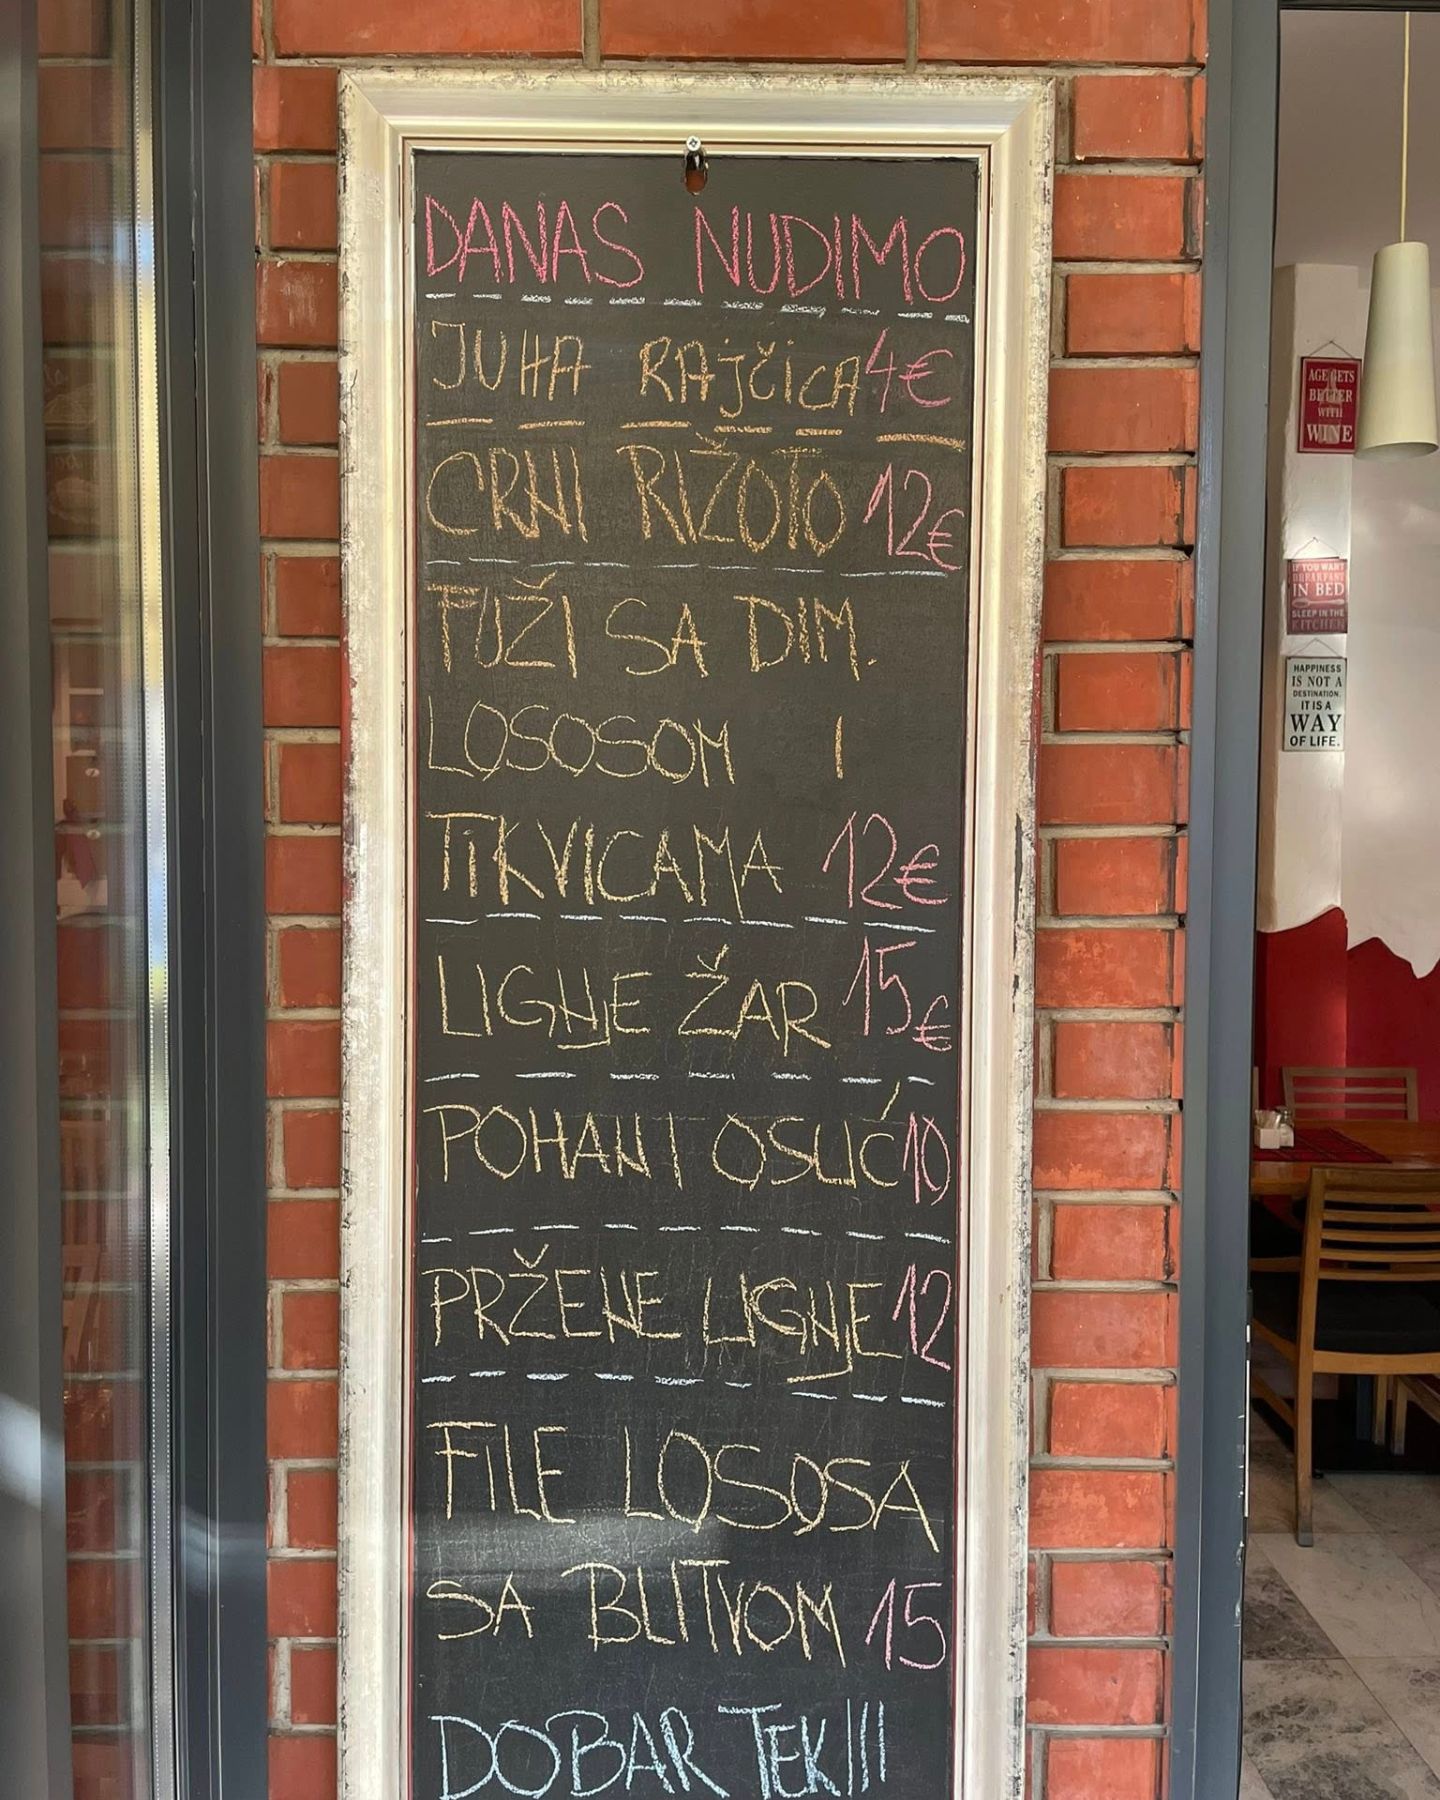 DANAS NUDIMO
JUHA RAJČICA 4€
CRNI RIŽOTO 12€
FUŽI SA DIM.
LOSOSOM I
TIKVICAMA 12€
LIGNJE ŽAR 15€
POHANI OSLIĆ 10
PRŽENE LIGNJE 12
FILE LOSOSA
SA BLITVOM 15
DOBAR TEK!!!
AGE GETS
BETTER
WITH
WINE
IF YOU WANT
BREAKFAST
IN BED
SLEEP IN THE
KITCHEN
HAPPINESS
IS NOT A
DESTINATION.
IT IS A
WAY
OF LIFE.